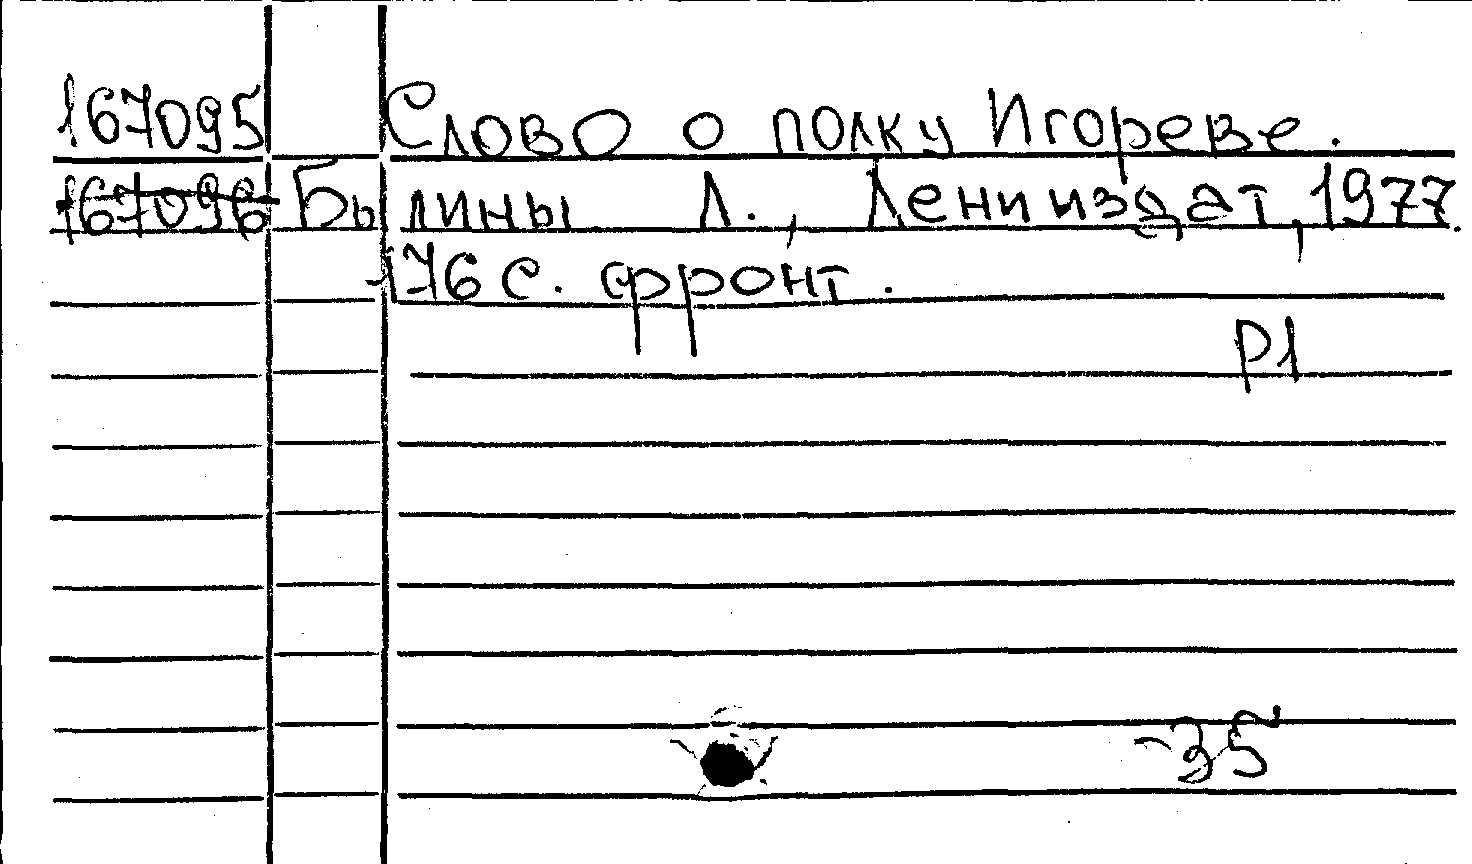 167095 Слово о полку Игореве.
167096 Былины Л., Лениздат, 1977.
176 с. фронт.
Р1
-35